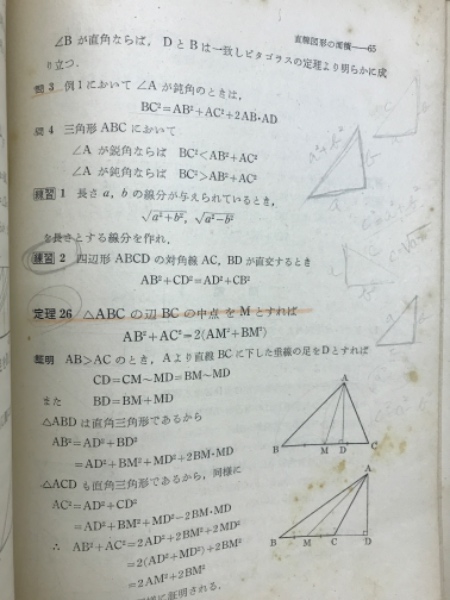 直線図形の面積——65
∠B が直角ならば，D と B は一致しピタゴラスの定理より明らかに成
り立つ．
問 3 例1において ∠A が鈍角のときは，
BC²=AB²+AC²+2AB·AD
問 4 三角形 ABC において
∠A が鋭角ならば BC²<AB²+AC²
∠A が鈍角ならば BC²>AB²+AC²
練習 1 長さ a, b の線分が与えられているとき，
√a²+b², √a²−b²
を長さとする線分を作れ．
練習 2 四辺形 ABCD の対角線 AC, BD が直交するとき
AB²+CD²=AD²+CB²
定理 26 △ABC の辺 BC の中点 を M とすれば
AB²+AC²=2(AM²+BM²)
証明 AB>AC のとき，A より直線 BC に下した垂線の足を D とすれば
CD=CM〜MD=BM〜MD
また BD=BM+MD
△ABD は直角三角形であるから
AB²=AD²+BD²
=AD²+BM²+MD²+2BM·MD
△ACD も直角三角形であるから，同様に
AC²=AD²+CD²
=AD²+BM²+MD²−2BM·MD
∴ AB²+AC²=2AD²+2BM²+2MD²
=2(AD²+MD²)+2BM²
=2AM²+2BM²
に証明される．
A
B M D C
A
B M C D